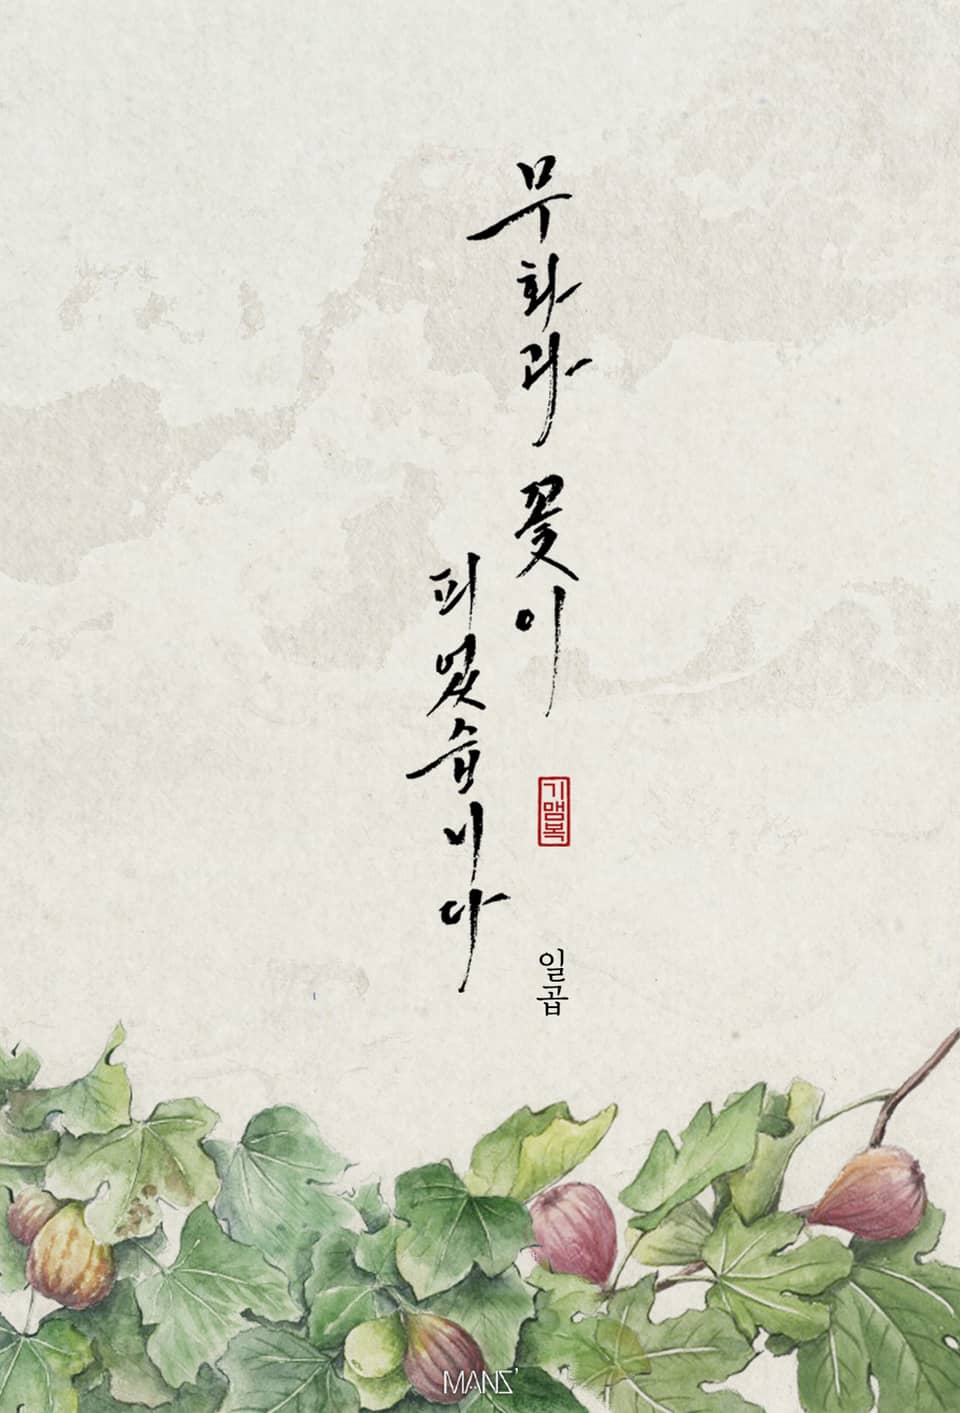 무화과 꽃이
피었습니다
기맴복
일곱
MANS'